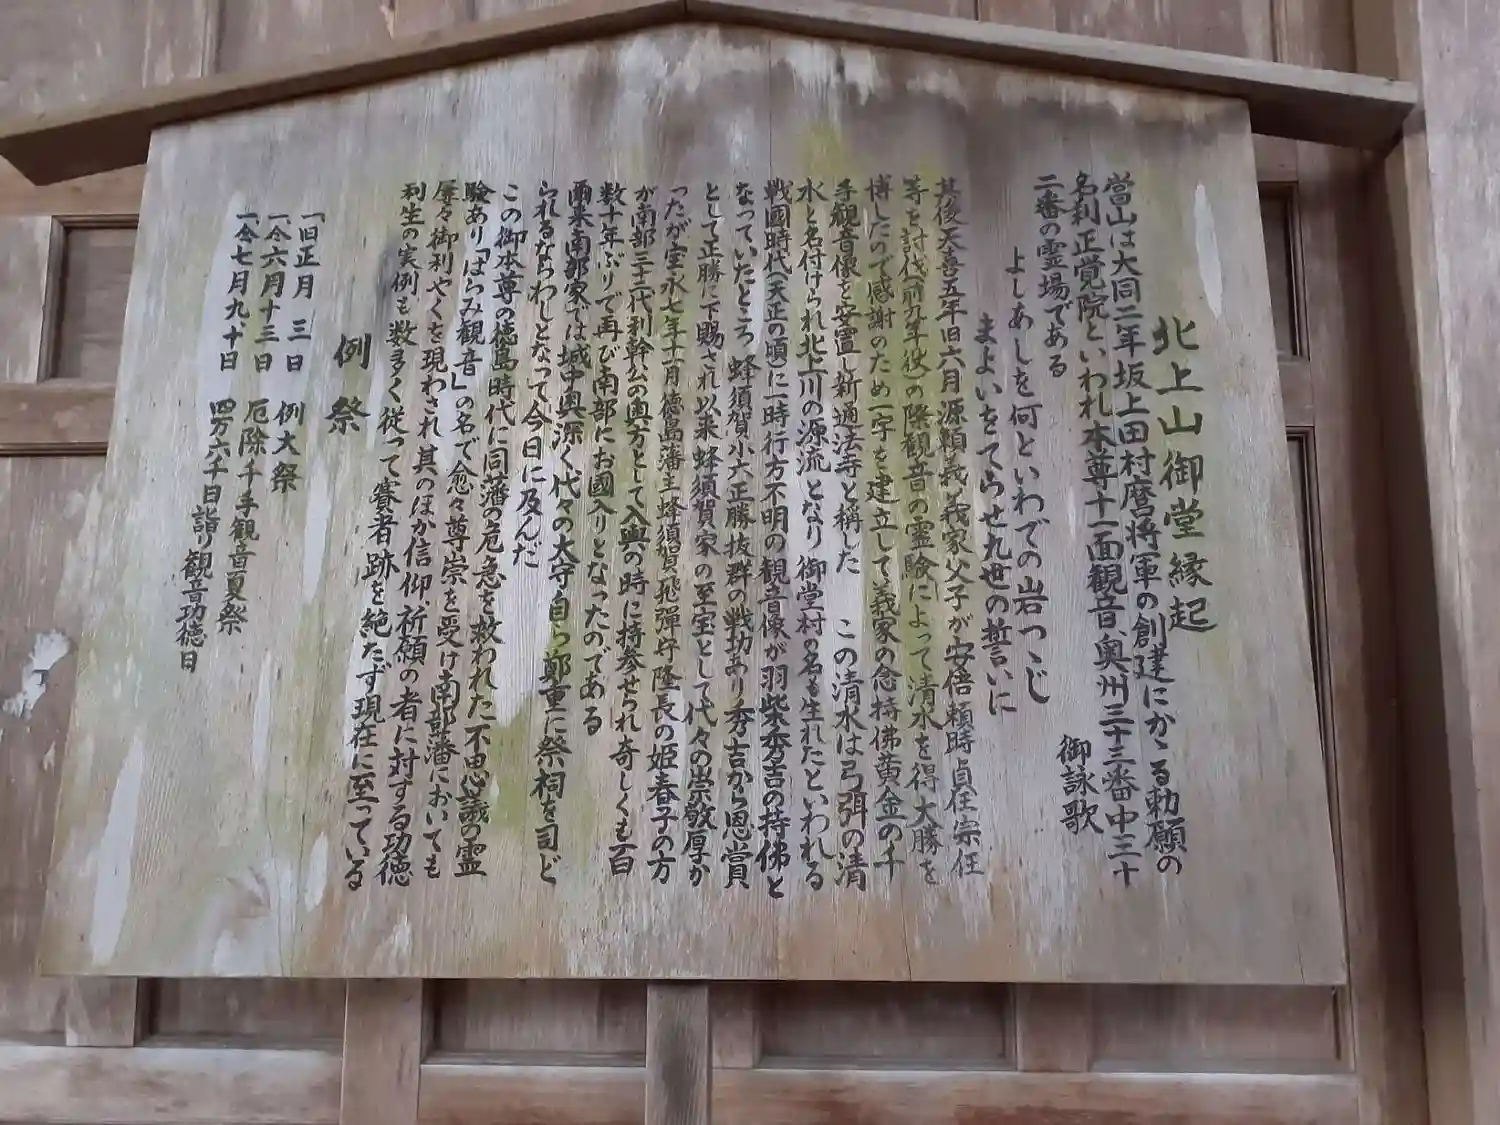 北上山御堂縁起
當山は大同二年坂上田村麿将軍の創建にかゝる勅願の
名刹正覚院といわれ本尊十一面観音、奥州三十三番中三十
二番の霊場である
御詠歌
よしあしを何といわでの岩つゝじ
まよいをてらせ九世の誓いに
其後天喜五年旧六月源頼義と義家父子が安倍頼時貞任宗任
等を討伐(前九年役)の際観音の霊験によって清水を得大勝を
博したので感謝のため一宇を建立して義家の念持佛黄金の千
手観音像を安置し新通法寺と稱した この清水は弓弭の清
水と名付けられ北上川の源流となり御堂村の名も生れたといわれる
戦國時代(天正の頃)に一時行方不明の観音像が羽柴秀吉の持佛と
なっていたところ 蜂須賀小六正勝抜群の戦功あり秀吉から恩賞
として正勝に下賜され以来蜂須賀家の至宝として代々の崇敬厚か
ったが宝永七年十一月徳島藩主蜂須賀飛彈守隆長の姫春子の方
が南部三十二代利幹公の奥方として入輿の時に持参せられ奇しくも百
数十年ぶりで再び南部にお國入りとなったのである
爾来南部家では城中奥深く代々の大守自ら鄭重に祭祠を司ど
られるならわしとなって今日に及んだ
この御本尊の徳島時代に同藩の危急を救われた不思議の霊
験あり「はらみ観音」の名で愈々尊崇を受け南部藩においても
屡々御利やくを現わされ其のほか信仰、祈願の者に対する功徳
利生の実例も数多く従って賽者跡を絶たず現在に至っている
例祭
一旧正月三日 例大祭
一仝六月十三日 厄除千手観音夏祭
一仝七月九、十日 四万六千日詣り観音功徳日